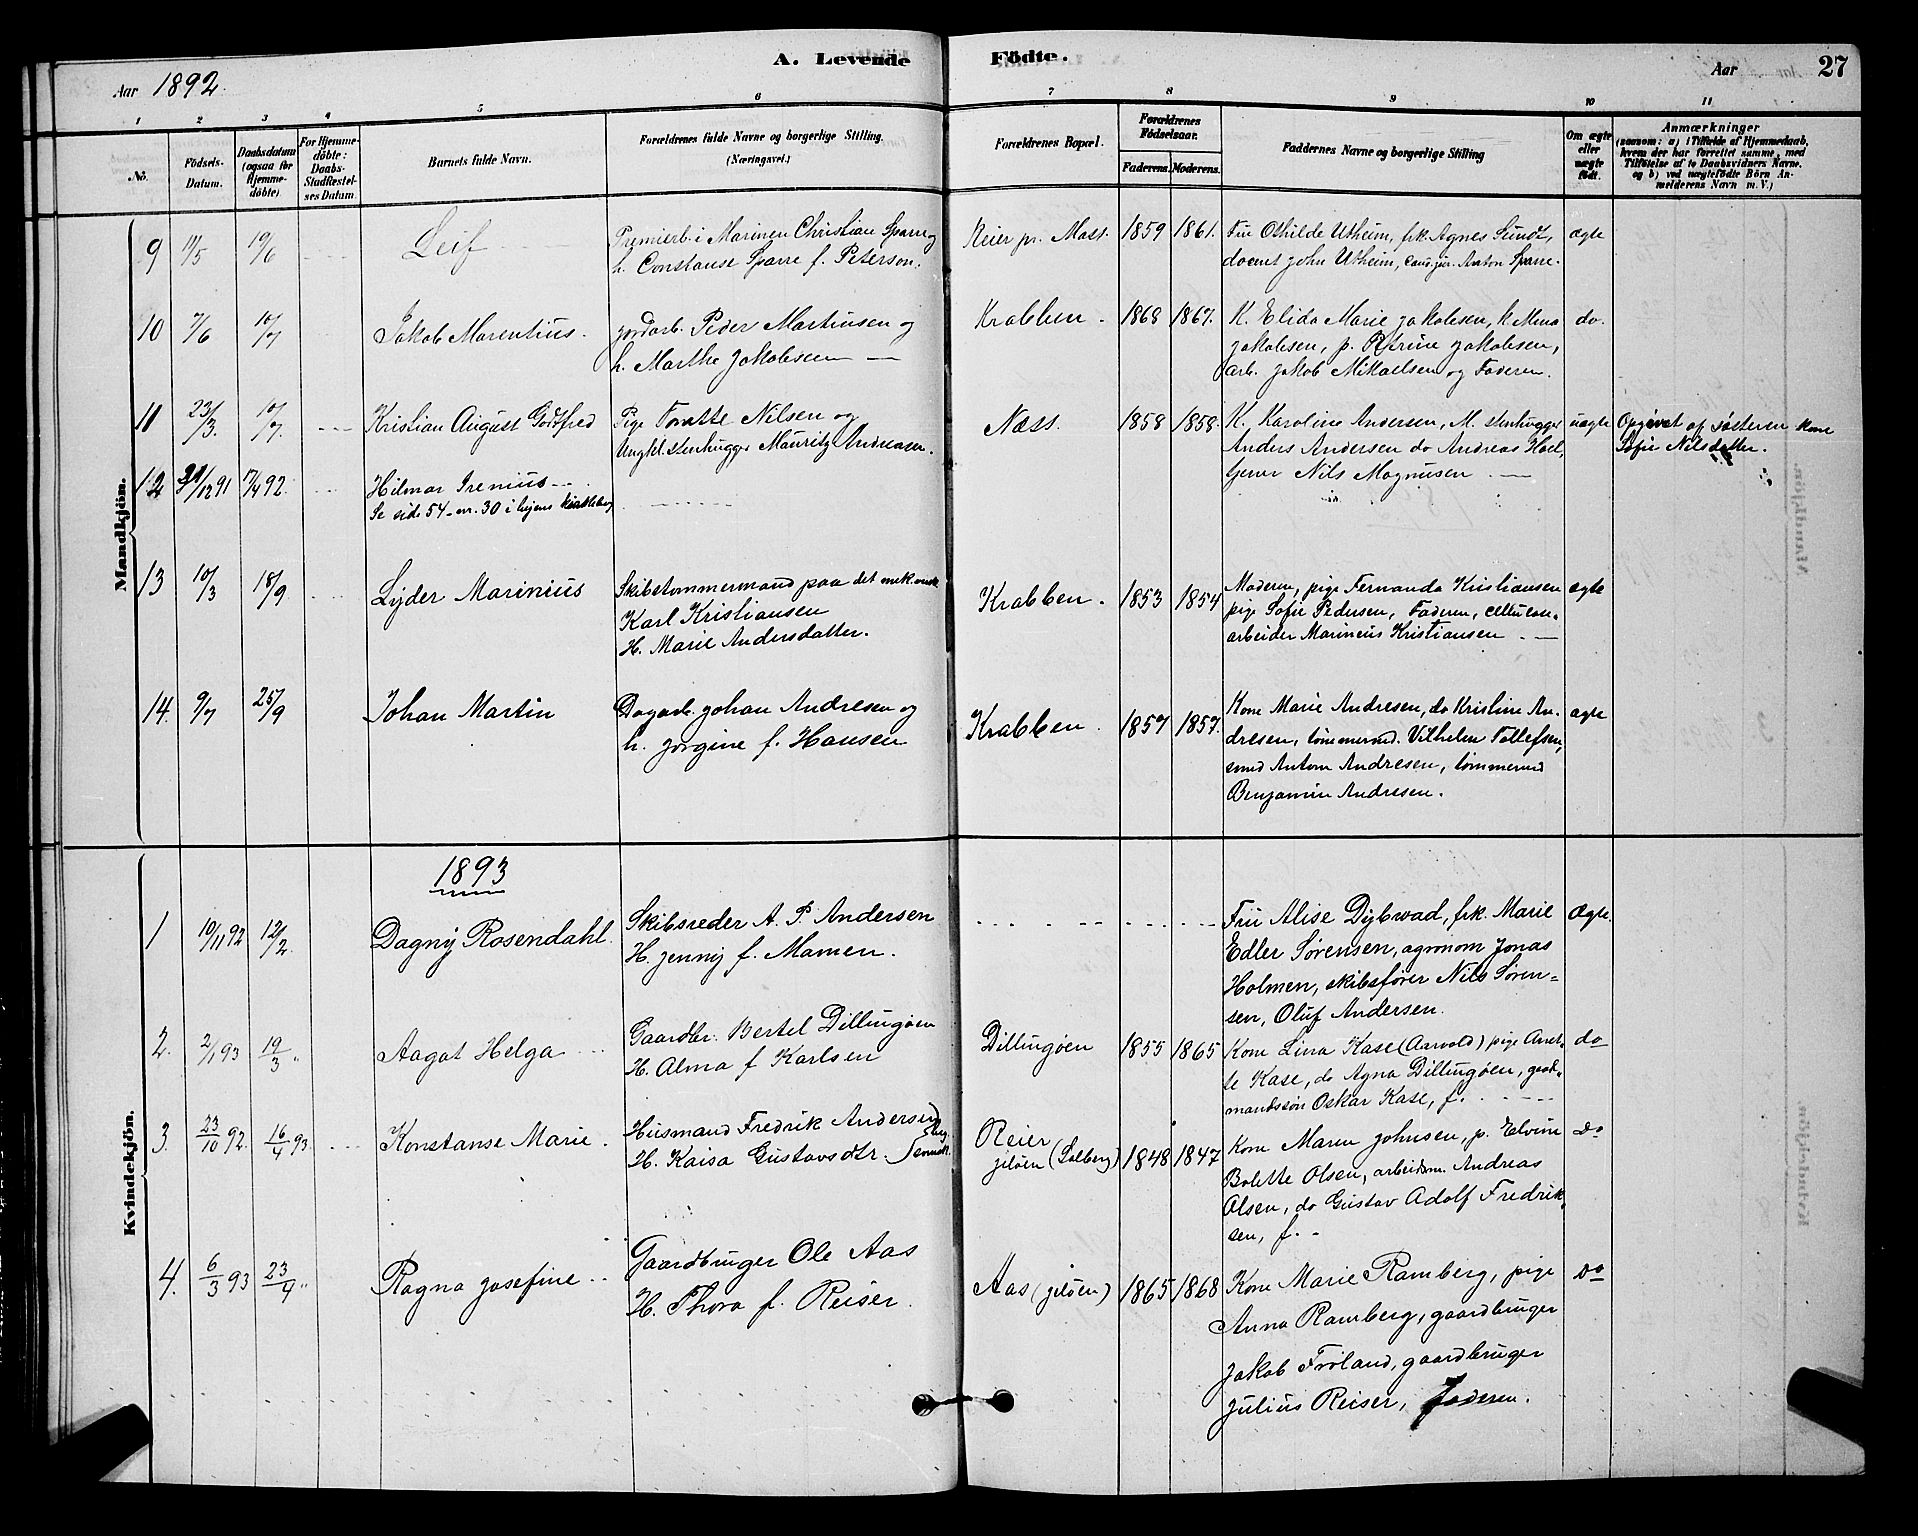 A. Levende Födte.
Aar 1892.
Aar 27
1 2 3 4 5 6 7 8 9 10 11
No.
Födsels-Datum.
Daabsdatum (ogsaa for Hjemme-döbte).
For Hjemme-döbte: Daabs-Stadfæstel-ses Datum.
Barnets fulde Navn.
Forældrenes fulde Navne og borgerlige Stilling. (Næringsvei.)
Forældrenes Bopæl.
Forældrenes Födselsaar.
Faderens. Moderens.
Faddernes Navne og borgerlige Stilling
Om ægte eller uægte födt.
Anmærkninger
(saasom: a) i Tilfælde af Hjemmedaab, hvem der har forrettet samme, med Tilföielse af to Daabsvidners Navne, og b) ved uægtefödte Börn An-melderens Navn m. V.)
Mandkjön.
9 11/5 19/6 Leif
Premierl. i Marinen Christian Sparre og
h. Constanse Sparre f. Peterson.
Reier pr. Moss. 1859 1861.
Fru Othilde Utheim, frk. Agnes Sundt,
docent John Utheim, cand. jur. Anton Sparre.
ægte
10 7/6 10/7 Jakob Marentius.
jordarb. Peder Martinsen og
h. Marthe Jakobsen
Krabben. 1868 1867.
K. Elida Marie Jakobsen, k. Mina
Jakobsen, p. Petrine Jakobsen,
arb. Jakob Mikaelsen og Faderen.
do.
11 23/3. 10/7. Kristian August Gotfred
Pige Nilsen og
Ungkl. stenhugger Mauritz Andreasen.
Næss. 1858 1858.
K. Karoline Andersen, M. stenhugger
Anders Andersen do Andreas Hoel,
Nils Magnusen
uægte
Opgivet af søsteren kone
Sofie Nilsdatter.
12 /12 91 17/4 92. Hilmar Irenius
Se side 54 - nr. 30 i byens kirkebog
13 10/3 18/9 Lyder Marinius
Skibstømmermand paa det mek. værk.
Karl Kristiansen
H. Marie Andersdatter.
Krabben. 1853 1854
Moderen, pige Fernanda Kristiansen
pige Sofie Pedersen, Faderen,
arbeider Marineus Kristiansen
ægte
14. 9/7 25/9 Johan Martin
Dagarb. Johan Andresen og
h. Jorgine f. Hansen
Krabben. 1857 1857.
Kone Marie Andresen, do Kristine An-
dresen, tømmermd. Vilhelm Tollefsen,
smed Anton Andresen, tømmermd
Benjamin Andresen.
ægte
1893
Kvindekjön.
1 10/11 92 12/2 Dagny Rosendahl.
Skibsreder A. P. Andersen
H. Jenny f. Mamen.
Fru Alise Dybwad, frk. Marie
Edler Sørensen, agronom Jonas
Holmen, skibsfører Nils Søren-
sen, Oluf Andersen.
Ægte.
2. 2/1 93 19/3 " Aagot Helga
Gaardbr. Bertel Dillingøen
H. Alma f Karlsen
Dillingøen 1855 1865
Kone Lina Kase (Aarvold) pige Anet-
te Kase, do Agna Dillingøen, gaard-
mandssøn Oskar Kase, f.
do
3. 23/10 92. 16/4 93. Konstanse Marie.
Husmand Fredrik Andersen
H. Kaisa Gustavsdtr.
Reier
jeløen (Solberg) 1848 1847
Kone Maren Johnsen, p. Elvine
Bolette Olsen, arbeidsm. Andreas
Olsen, do Gustav Adolf Fredrik-
sen, f.
Do
4. 6/3 93 23/4 " Ragna Josefine
Gaardbruger Ole Aas
H. Thora f. Reiser.
Aas (jeløen) 1865 1868
Kone Marie Ramberg, pige
Anna Ramberg, gaardbruger
Jakob Frøland, gaardbruger
Julius Reiser, Faderen.
Do